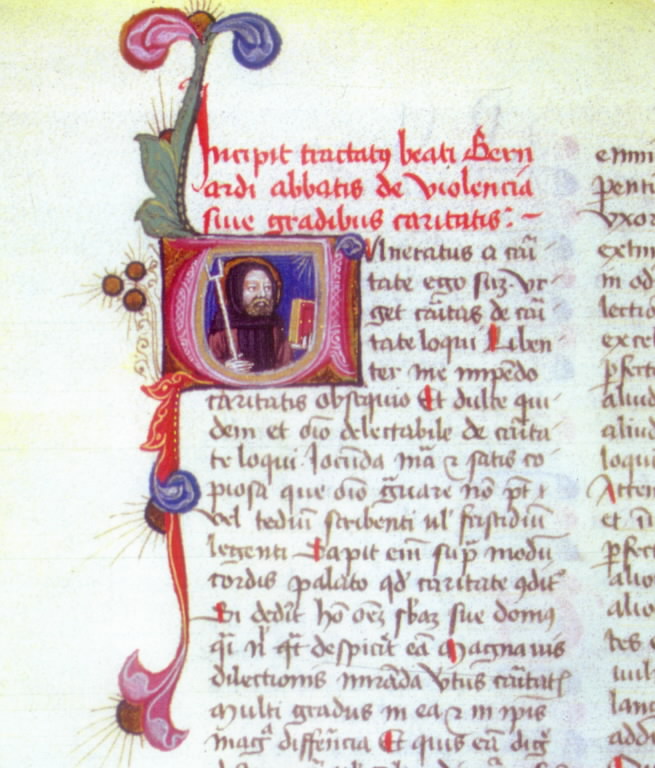 Incipit tractatꝰ beati Bern
ardi abbatis de violencia
siue gradibus caritatis:
Vlneratus a cāi
tate ego sū. Vr
get cāitas de cāi
tate loqui Liben
ter me impēdo
caritatis obsequio Et dulce qui
dem et oīo delectabile de cāita
te loqui. Iocūda mā ꝛ satis co
piosa que oīo gͣuare nō pt̄
vel tediū scribenti ul' fastidiū
legenti Sapit eīm suꝑ modū
cordis palato qd' caritate ꝯdit᷒
Si dedīt hō oēꝫ sb̄aꝫ sue domꝰ
despiciet eā Magna uis
dilectionis mirāda v̄tus cāitatꝭ
Multi gradus in ea ꝛ in ipis
magͣ differīcia Et quis eā
penti
vxor
in od
lectio
excel
ꝑfect
aliud
aliud
loqui
Atten
et
ꝑfect
alio
alio
tes e
lang